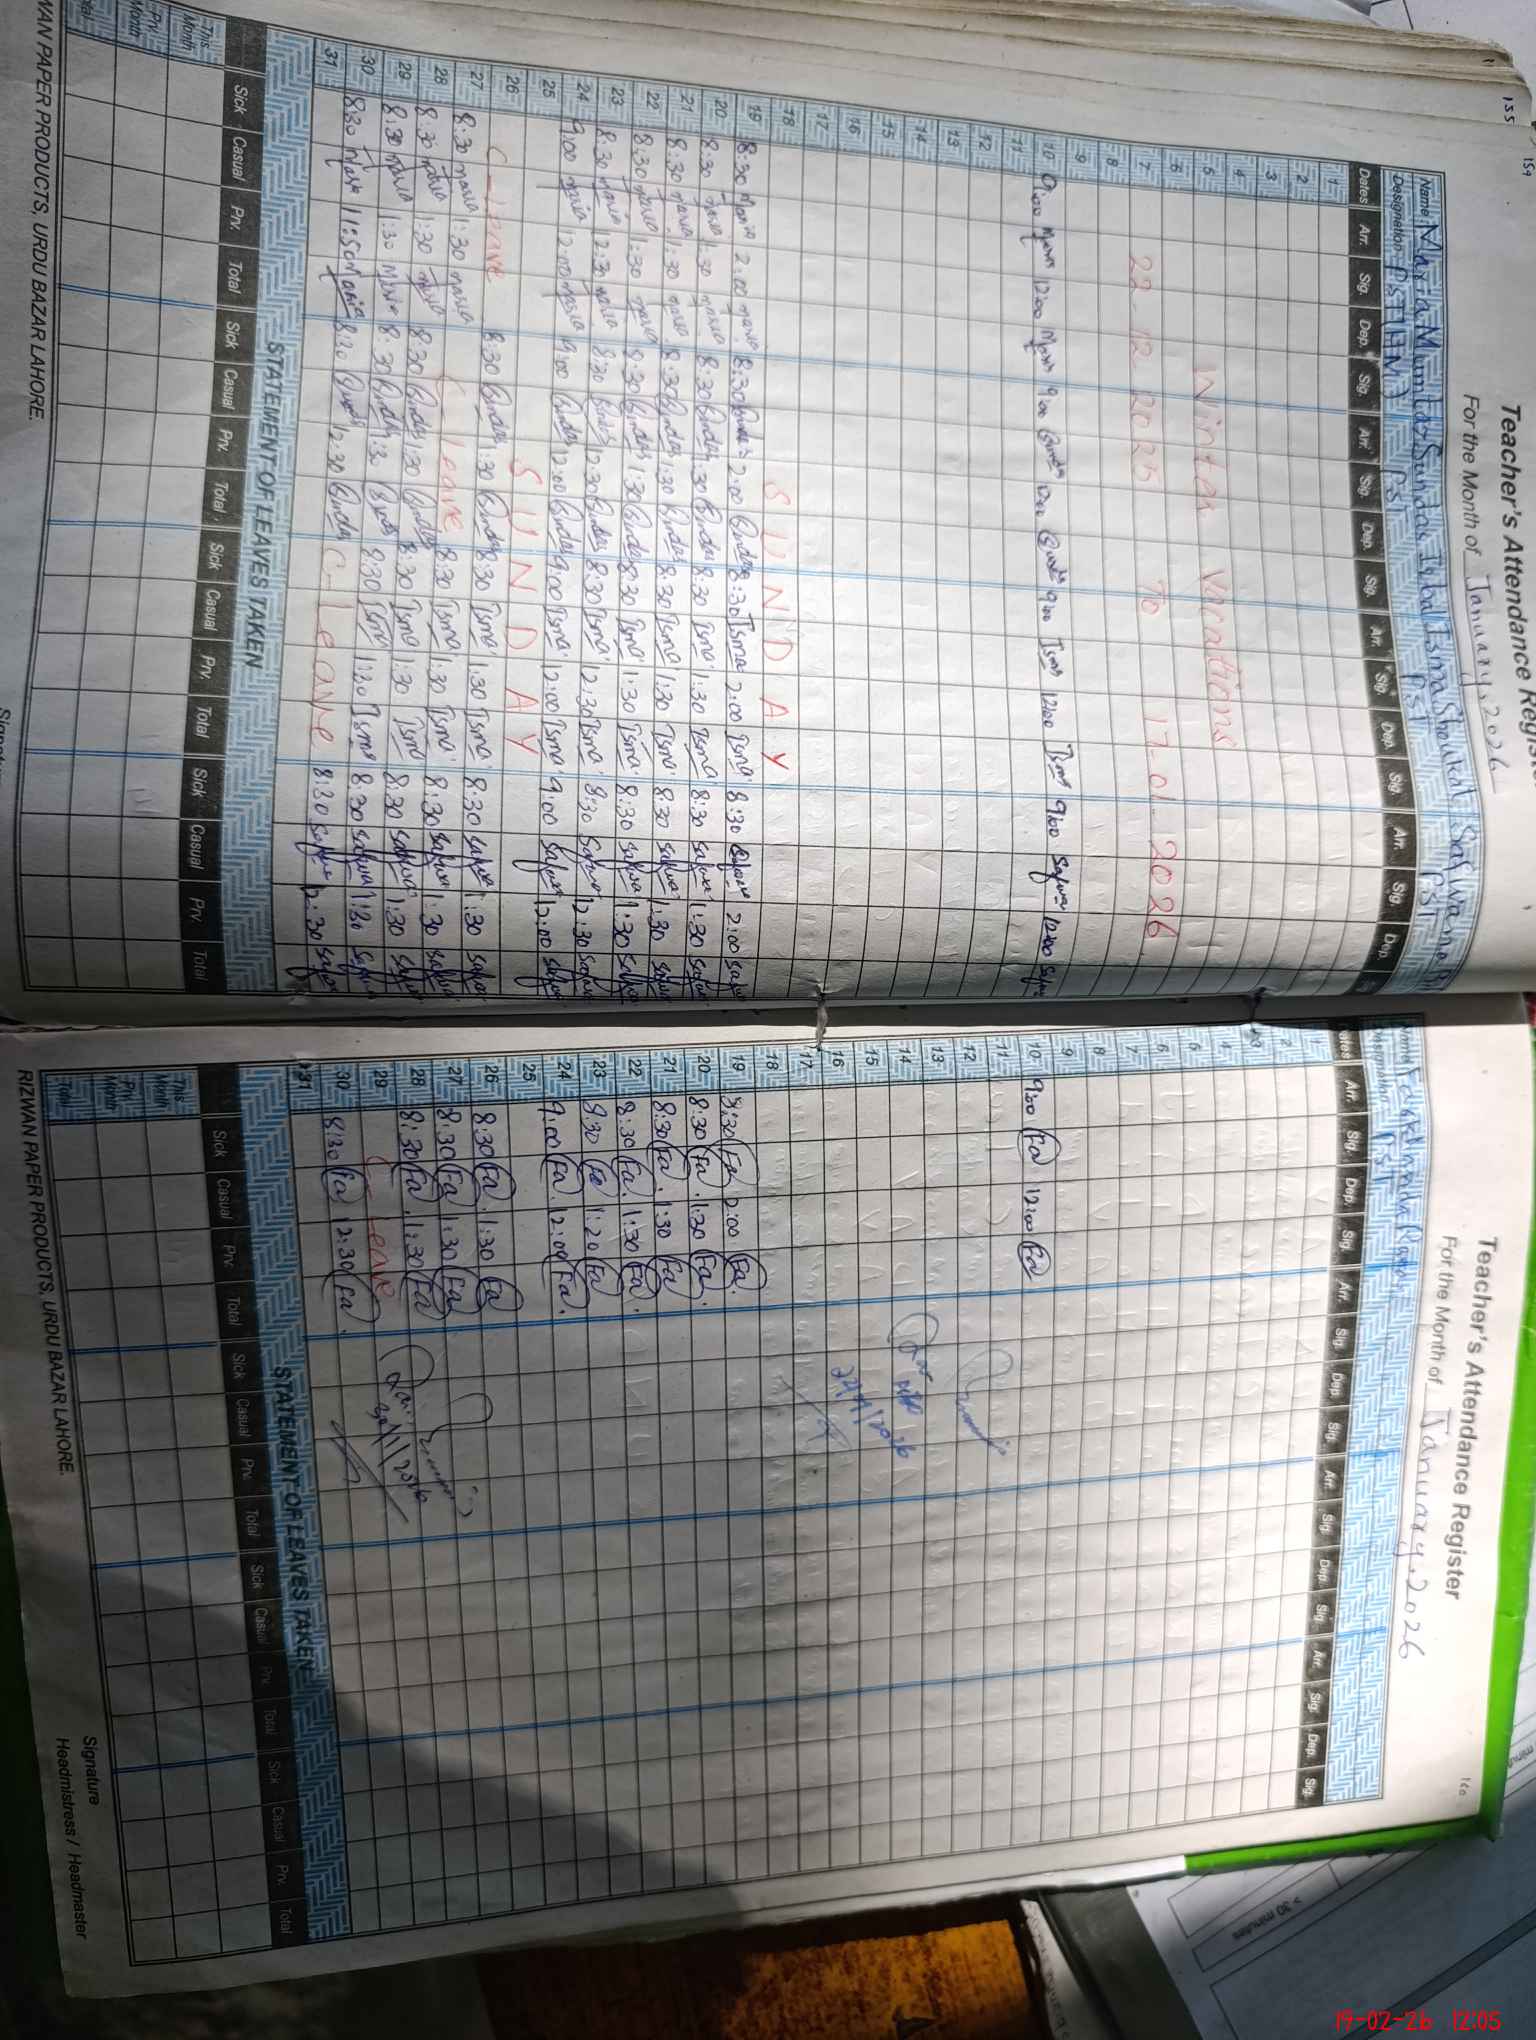 155
159
Teacher's Attendance Regist
For the Month of January, 2026
Name: Maria Mumtaz Sundas Iqbal Isma Shoukat Safwana
Designation PST(HM) PST PST PST
Dates Arr. Sig. Dep. Sig. Arr. Sig. Dep. Sig. Arr. Sig. Dep. Sig. Arr. Sig. Dep.
1
2
3
4
5 Winter Vacations
6
7 22-12-2025 To 17-01-2026
8
9
10 9:00 Maria 12:00 Maria 9:00 Sundas Sundas 9:00 Isma 12:00 Isma 9:00 Safwa 12:00 Safwa
11
12
13
14
15
16
17
18 SUNDAY
19 8:30 Maria 2:00 Maria 8:30 Sundas 2:00 Sundas 8:30 Isma 2:00 Isma 8:30 Safwa 2:00 Safwa
20 8:30 Maria 1:30 Maria 8:30 Sundas 1:30 Sundas 8:30 Isma 1:30 Isma 8:30 Safwa 1:30 Safwa
21 8:30 Maria 1:30 Maria 8:30 Sundas 1:30 Sundas 8:30 Isma 1:30 Isma 8:30 Safwa 1:30 Safwa
22 8:30 Maria 1:30 Maria 8:30 Sundas 1:30 Sundas 8:30 Isma 1:30 Isma 8:30 Safwa 1:30 Safwa
23 8:30 Maria 12:30 Maria 8:30 Sundas 12:30 Sundas 8:30 Isma 12:30 Isma 8:30 Safwa 12:30 Safwa
24 9:00 Maria 12:00 Maria 9:00 Sundas 12:00 Sundas 9:00 Isma 12:00 Isma 9:00 Safwa 12:00 Safwa
25 SUNDAY
26 C-Leave 8:30 Sundas 1:30 Sundas 8:30 Isma 1:30 Isma 8:30 Safwa 1:30 Safwa
27 8:30 Maria 1:30 Maria C Leave 8:30 Isma 1:30 Isma 8:30 Safwa 1:30 Safwa
28 8:30 Maria 1:30 Maria 8:30 Sundas 1:30 Sundas 8:30 Isma 1:30 Isma 8:30 Safwa 1:30 Safwa
29 8:30 Maria 1:30 Maria 8:30 Sundas 1:30 Sundas 8:30 Isma 1:30 Isma 8:30 Safwa 1:30 Safwa
30 8:30 Maria 11:50 Maria 8:30 Sundas 12:30 Sundas C-Leave 8:30 Safwa 12:30 Safwa
31
STATEMENT OF LEAVES TAKEN
Sick Casual Prv. Total Sick Casual Prv. Total Sick Casual Prv. Total Sick Casual Prv. Total
This Month
Prv. Month
Total
WAN PAPER PRODUCTS, URDU BAZAR LAHORE.
160
Teacher's Attendance Register
For the Month of January, 2026
PST
Dates Arr. Sig. Dep. Sig. Arr. Sig. Dep. Sig. Arr. Sig. Dep. Sig. Arr. Sig. Dep. Sig.
1
2
3
4
5
6
7
8
9
10 9:00 Fa 12:00 Fa
11
12
13
14
15
16
17
18
19 8:30 Fa 2:00 Fa
20 8:30 Fa 1:30 Fa
21 8:30 Fa 1:30 Fa
22 8:30 Fa 1:30 Fa
23 8:30 Fa 1:20 Fa
24 9:00 Fa 12:00 Fa
25
26 8:30 Fa 1:30 Fa
27 8:30 Fa 1:30 Fa
28 8:30 Fa 1:30 Fa
29 C Leave
30 8:30 Fa 12:30 Fa
31
STATEMENT OF LEAVES TAKEN
Sick Casual Prv. Total Sick Casual Prv. Total Sick Casual Prv. Total Sick Casual Prv. Total
This Month
Prv. Month
Total
Signature
Headmistress / Headmaster
RIZWAN PAPER PRODUCTS, URDU BAZAR LAHORE.
> 30 minutes
19-02-26 12:05